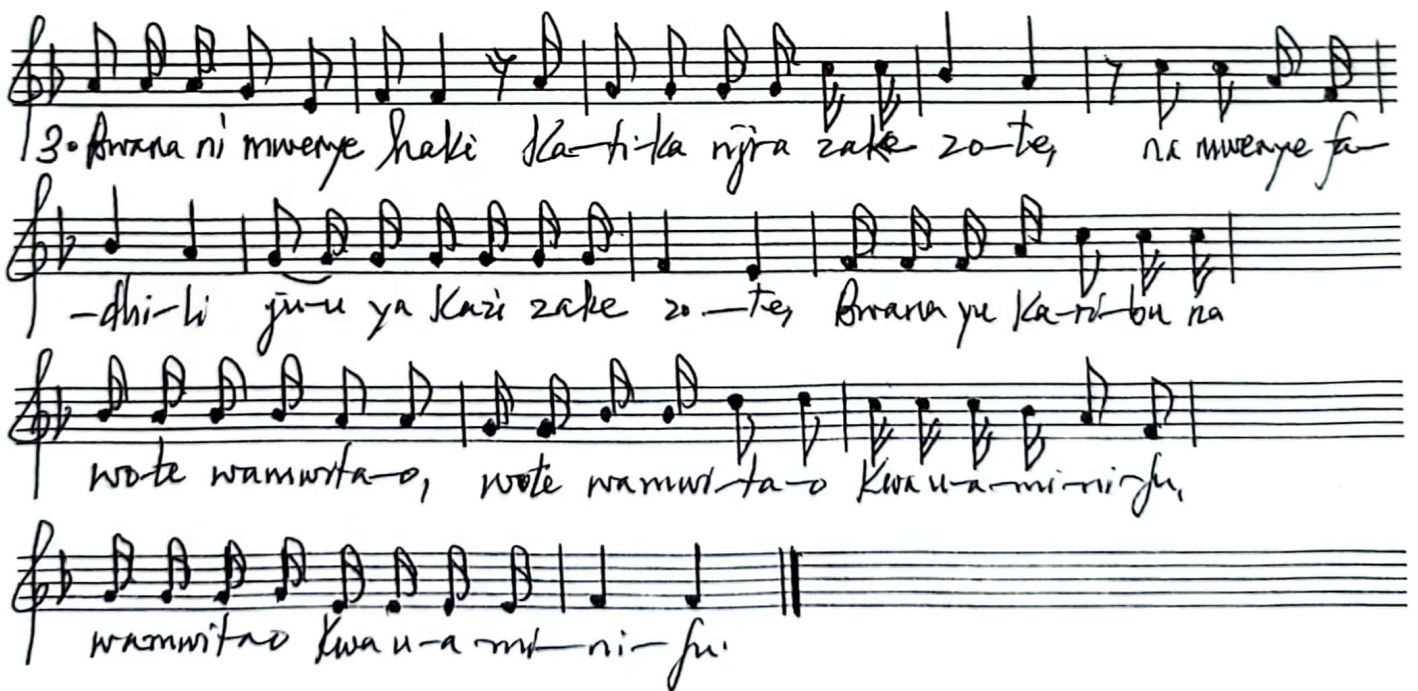 3. Bwana ni mwenye haki Ka-ti-ka njia zake zo-te, na mwenye fa-
-dhi-li ju-u ya Kazi zake zo-te, Bwana yu Ka-ri-bu na
wote wamwita-o, wote wamwi-ta-o Kwa u-a-mi-ni-fu,
wamwitao Kwa u-a-mi-ni-fu.